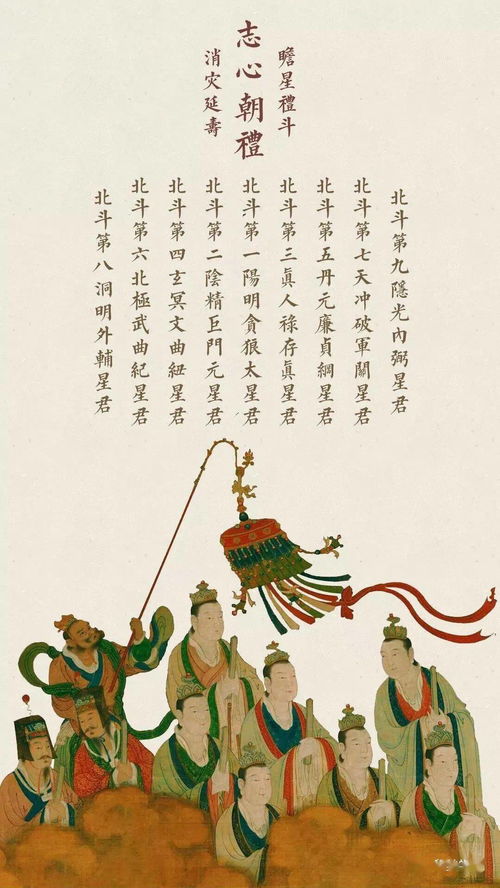 瞻星禮斗
志心朝禮
消灾延壽
北斗第九隱光內弼星君
北斗第七天冲破軍關星君
北斗第五丹元廉貞綱星君
北斗第三眞人祿存眞星君
北斗第一陽明貪狼太星君
北斗第二陰精巨門元星君
北斗第四玄冥文曲紐星君
北斗第六北極武曲紀星君
北斗第八洞明外輔星君